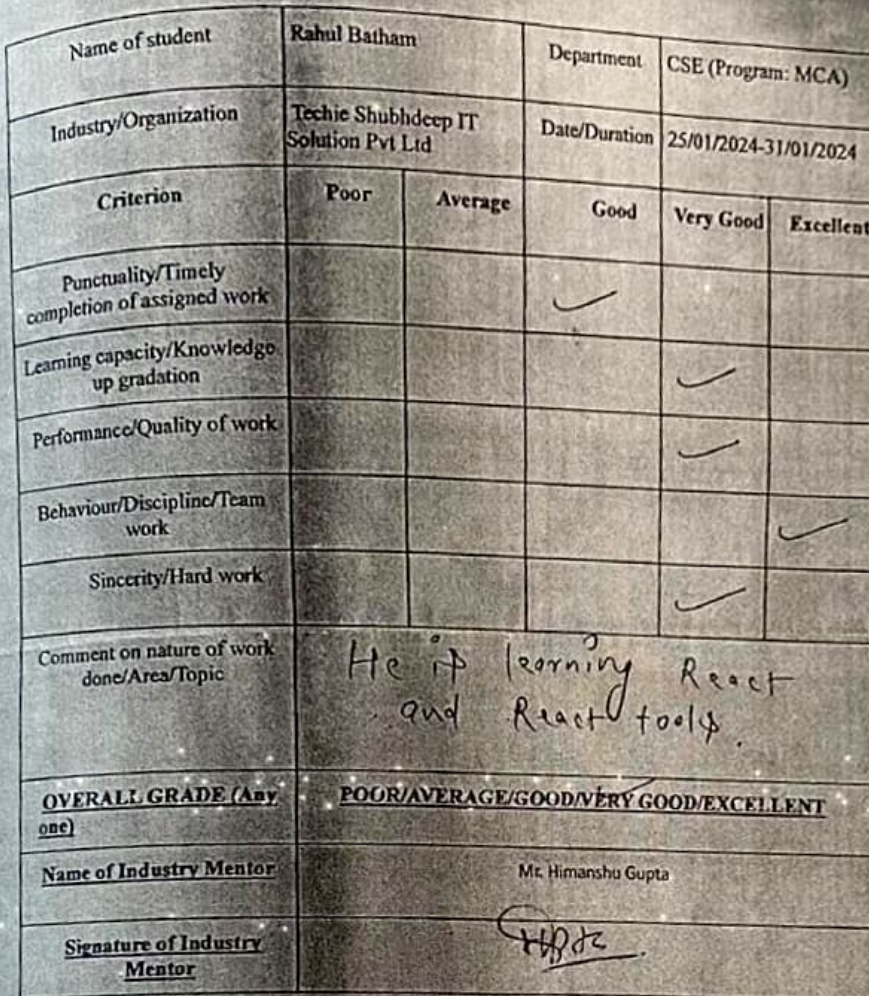 Name of student
Rahul Batham
Department
CSE (Program: MCA)
Industry/Organization
Techie Shubhdeep IT
Solution Pvt Ltd
Date/Duration
25/01/2024-31/01/2024
Criterion
Poor
Average
Good
Very Good
Excellent
Punctuality/Timely
completion of assigned work
Learning capacity/Knowledge
up gradation
Performance/Quality of work
Behaviour/Discipline/Team
work
Sincerity/Hard work
Comment on nature of work
done/Area/Topic
He is learning React
and React tools.
OVERALL GRADE (Any
one)
POOR/AVERAGE/GOOD/VERY GOOD/EXCELLENT
Name of Industry Mentor
Mr. Himanshu Gupta
Signature of Industry
Mentor